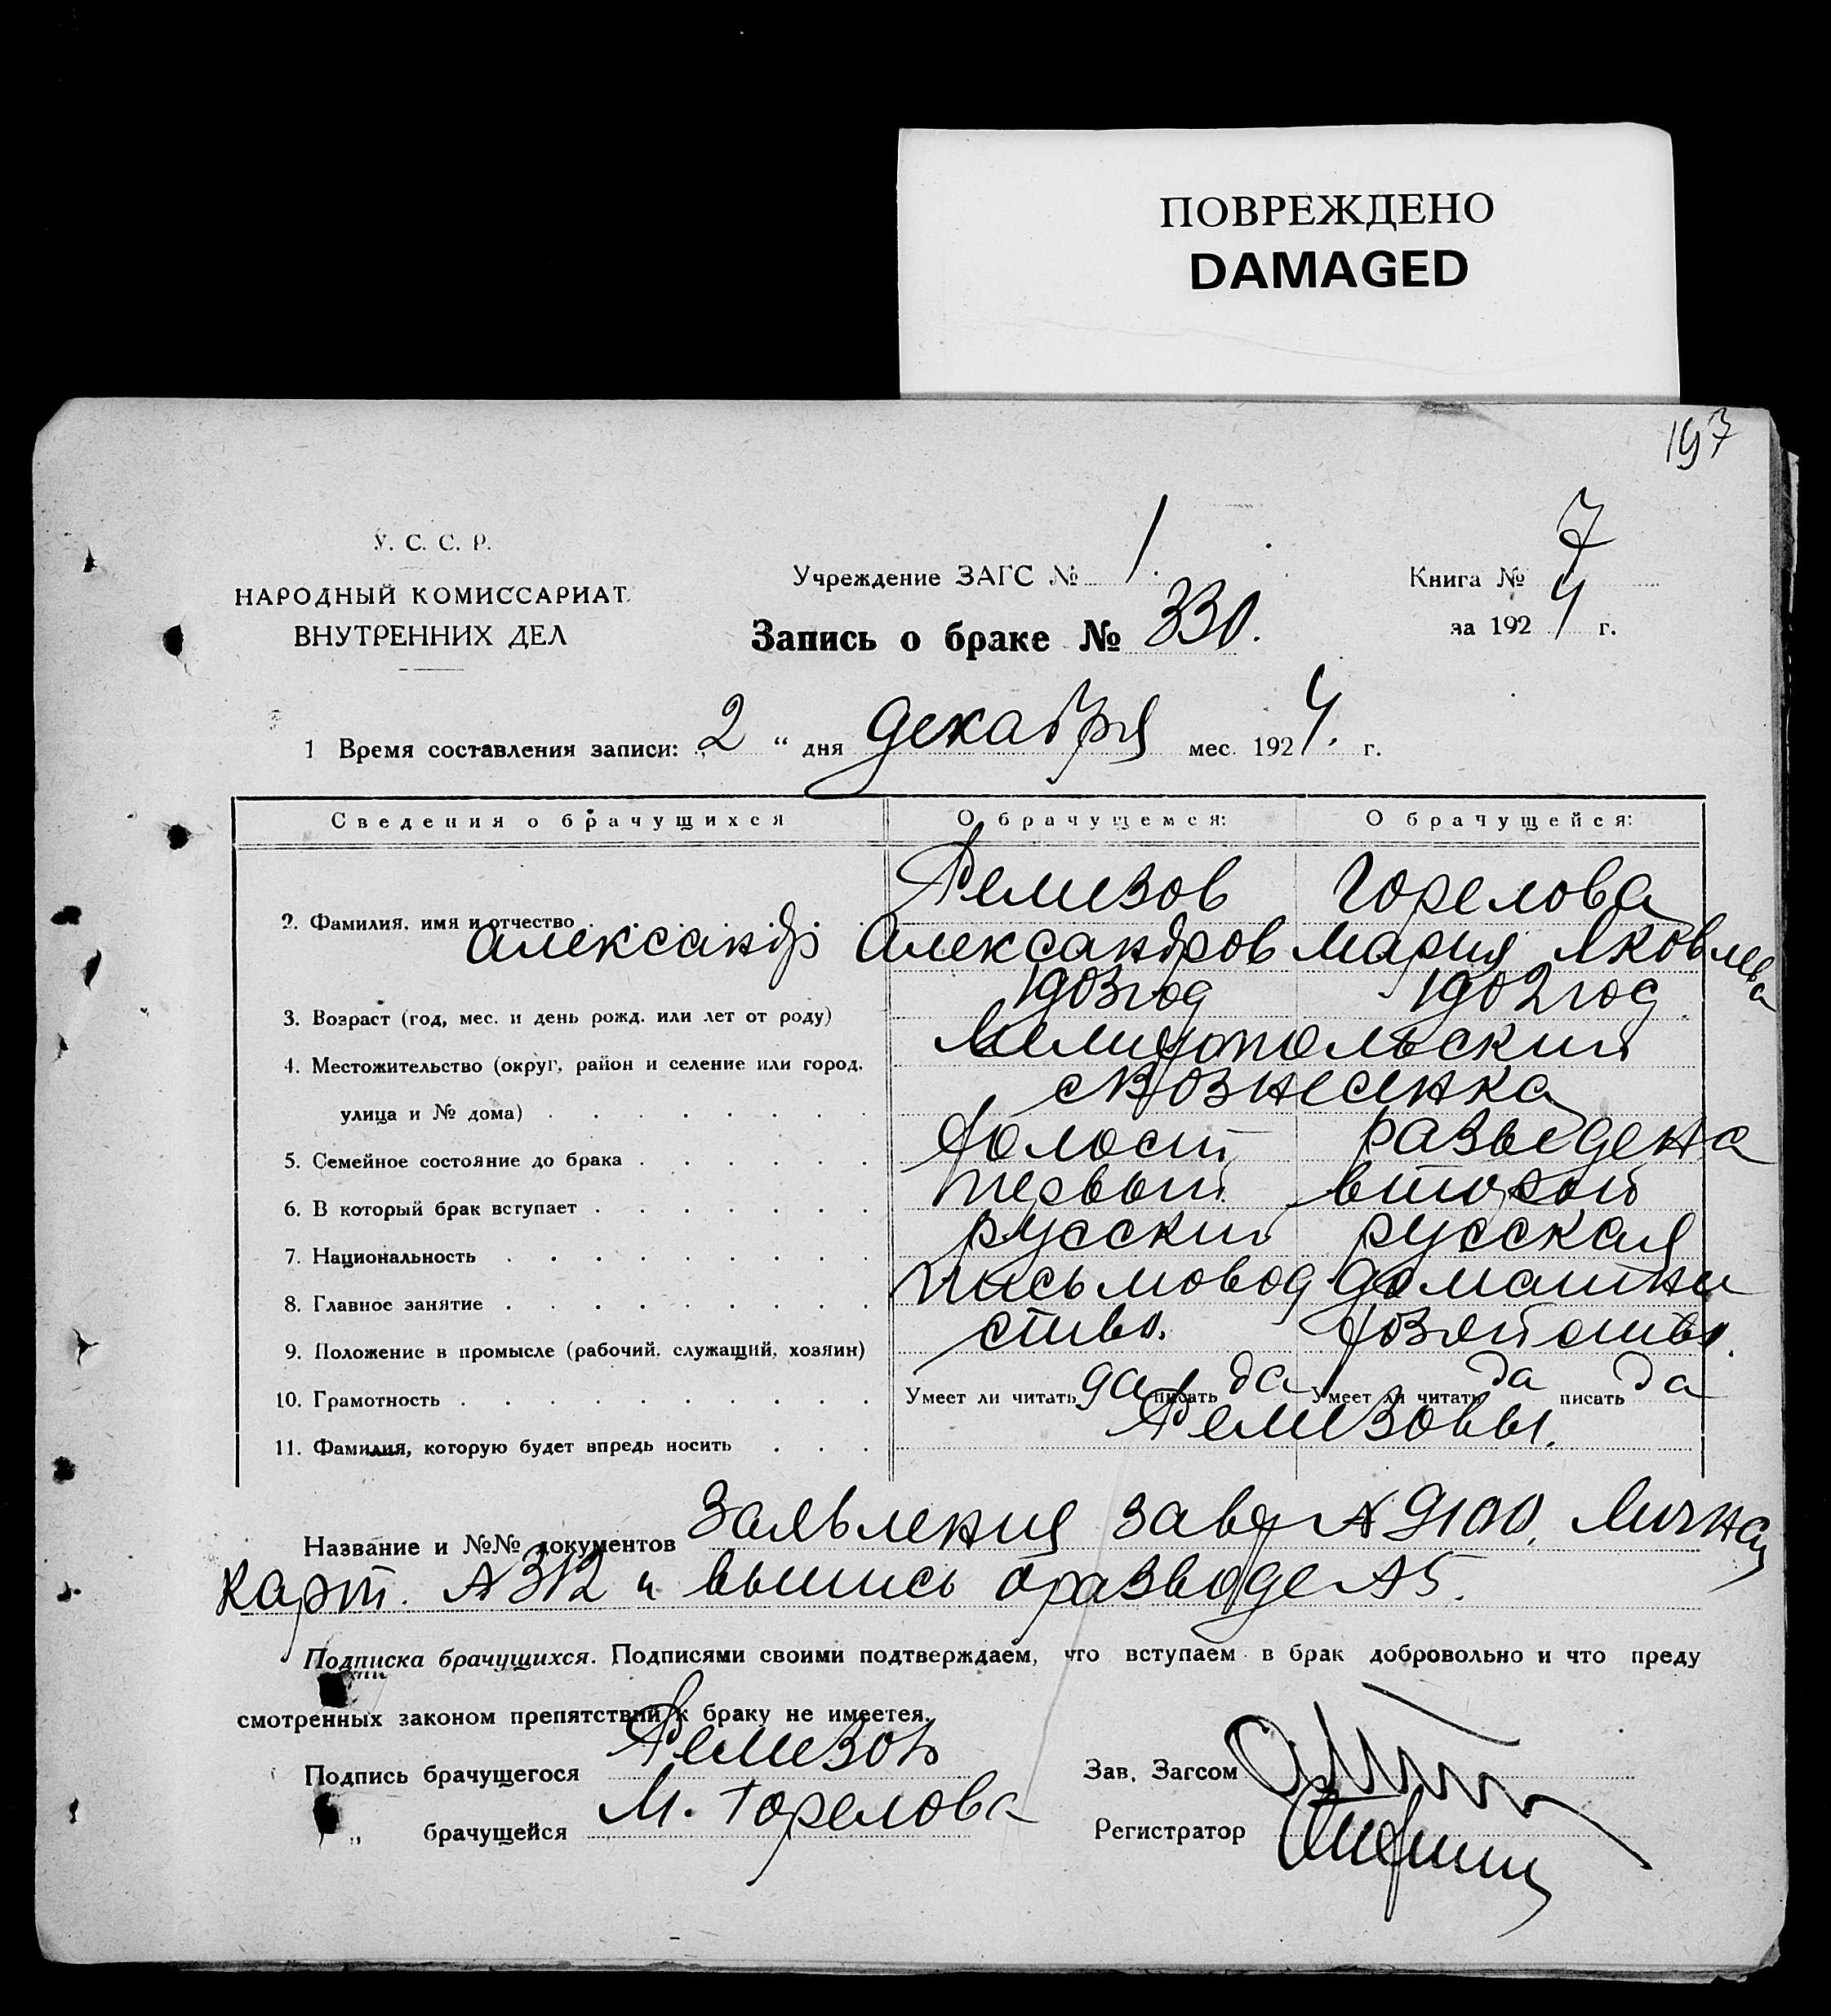 ПОВРЕЖДЕНО
DAMAGED
197
У. С. С. Р.
НАРОДНЫЙ КОМИССАРИАТ
ВНУТРЕННИХ ДЕЛ
Учреждение ЗАГС № 1.
Книга № 7
за 1924 г.
Запись о браке № 330.
1 Время составления записи: „2“ дня декабря мес. 1924. г.
Сведения о брачущихся О брачущемся: О брачущейся:
Ремизов Горелова
2. Фамилия, имя и отчество
Александр Александров Мария Яковлева
1903 год 1902 год
3. Возраст (год, мес. и день рожд. или лет от роду)
Мелитопольский
4. Местожительство (округ, район и селение или город,
с Вознесенка
улица и № дома)
5. Семейное состояние до брака холост разведена
6. В который брак вступает первый второй
7. Национальность русский русская
8. Главное занятие письмовод домашни
ство. хозяйство.
9. Положение в промысле (рабочий, служащий, хозяин)
10. Грамотность Умеет ли читать да писать да Умеет ли читать да писать да
11. Фамилия, которую будет впредь носить Ремизовы.
Название и №№ документов Заявления завер № 9100, Личная
карт. № 312 и выпись о разводе № 5.
Подписка брачущихся. Подписями своими подтверждаем, что вступаем в брак добровольно и что преду
смотренных законом препятствий к браку не имеется.
Подпись брачущегося Ремизов
Зав. Загсом
„ брачущейся М. Горелова
Регистратор